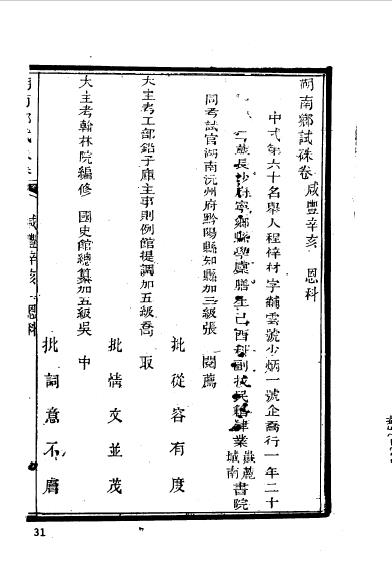 湖南鄉試硃卷 咸豐辛亥 恩科
中式第六十名舉人程梓材字黼雲號少炳一號企喬行一年二十
歲長沙縣寧鄉縣學廩膳生己酉科副拔民籍肄業嶽麓城南書院
同考試官湖南沅州府黔陽縣知縣加三級張 閱薦
批從容有度
大主考工部鉛子庫主事則例館提調加五級喬 取
批情文並茂
大主考翰林院編修 國史館總纂加五級吳 中
批詞意不膚
咸豐辛亥 恩科
31